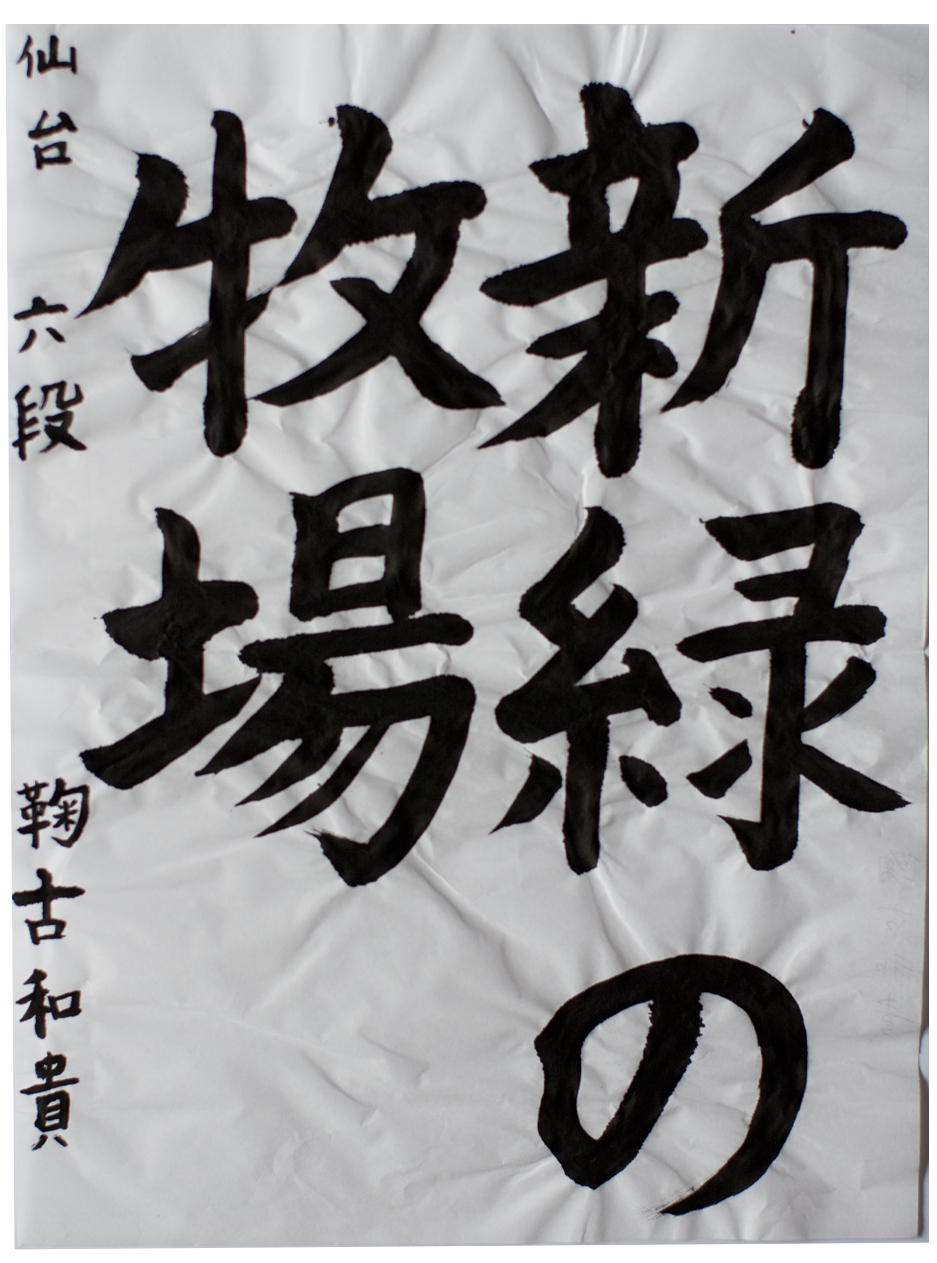 新緑の
牧場
仙台 六段 鞠古和貴